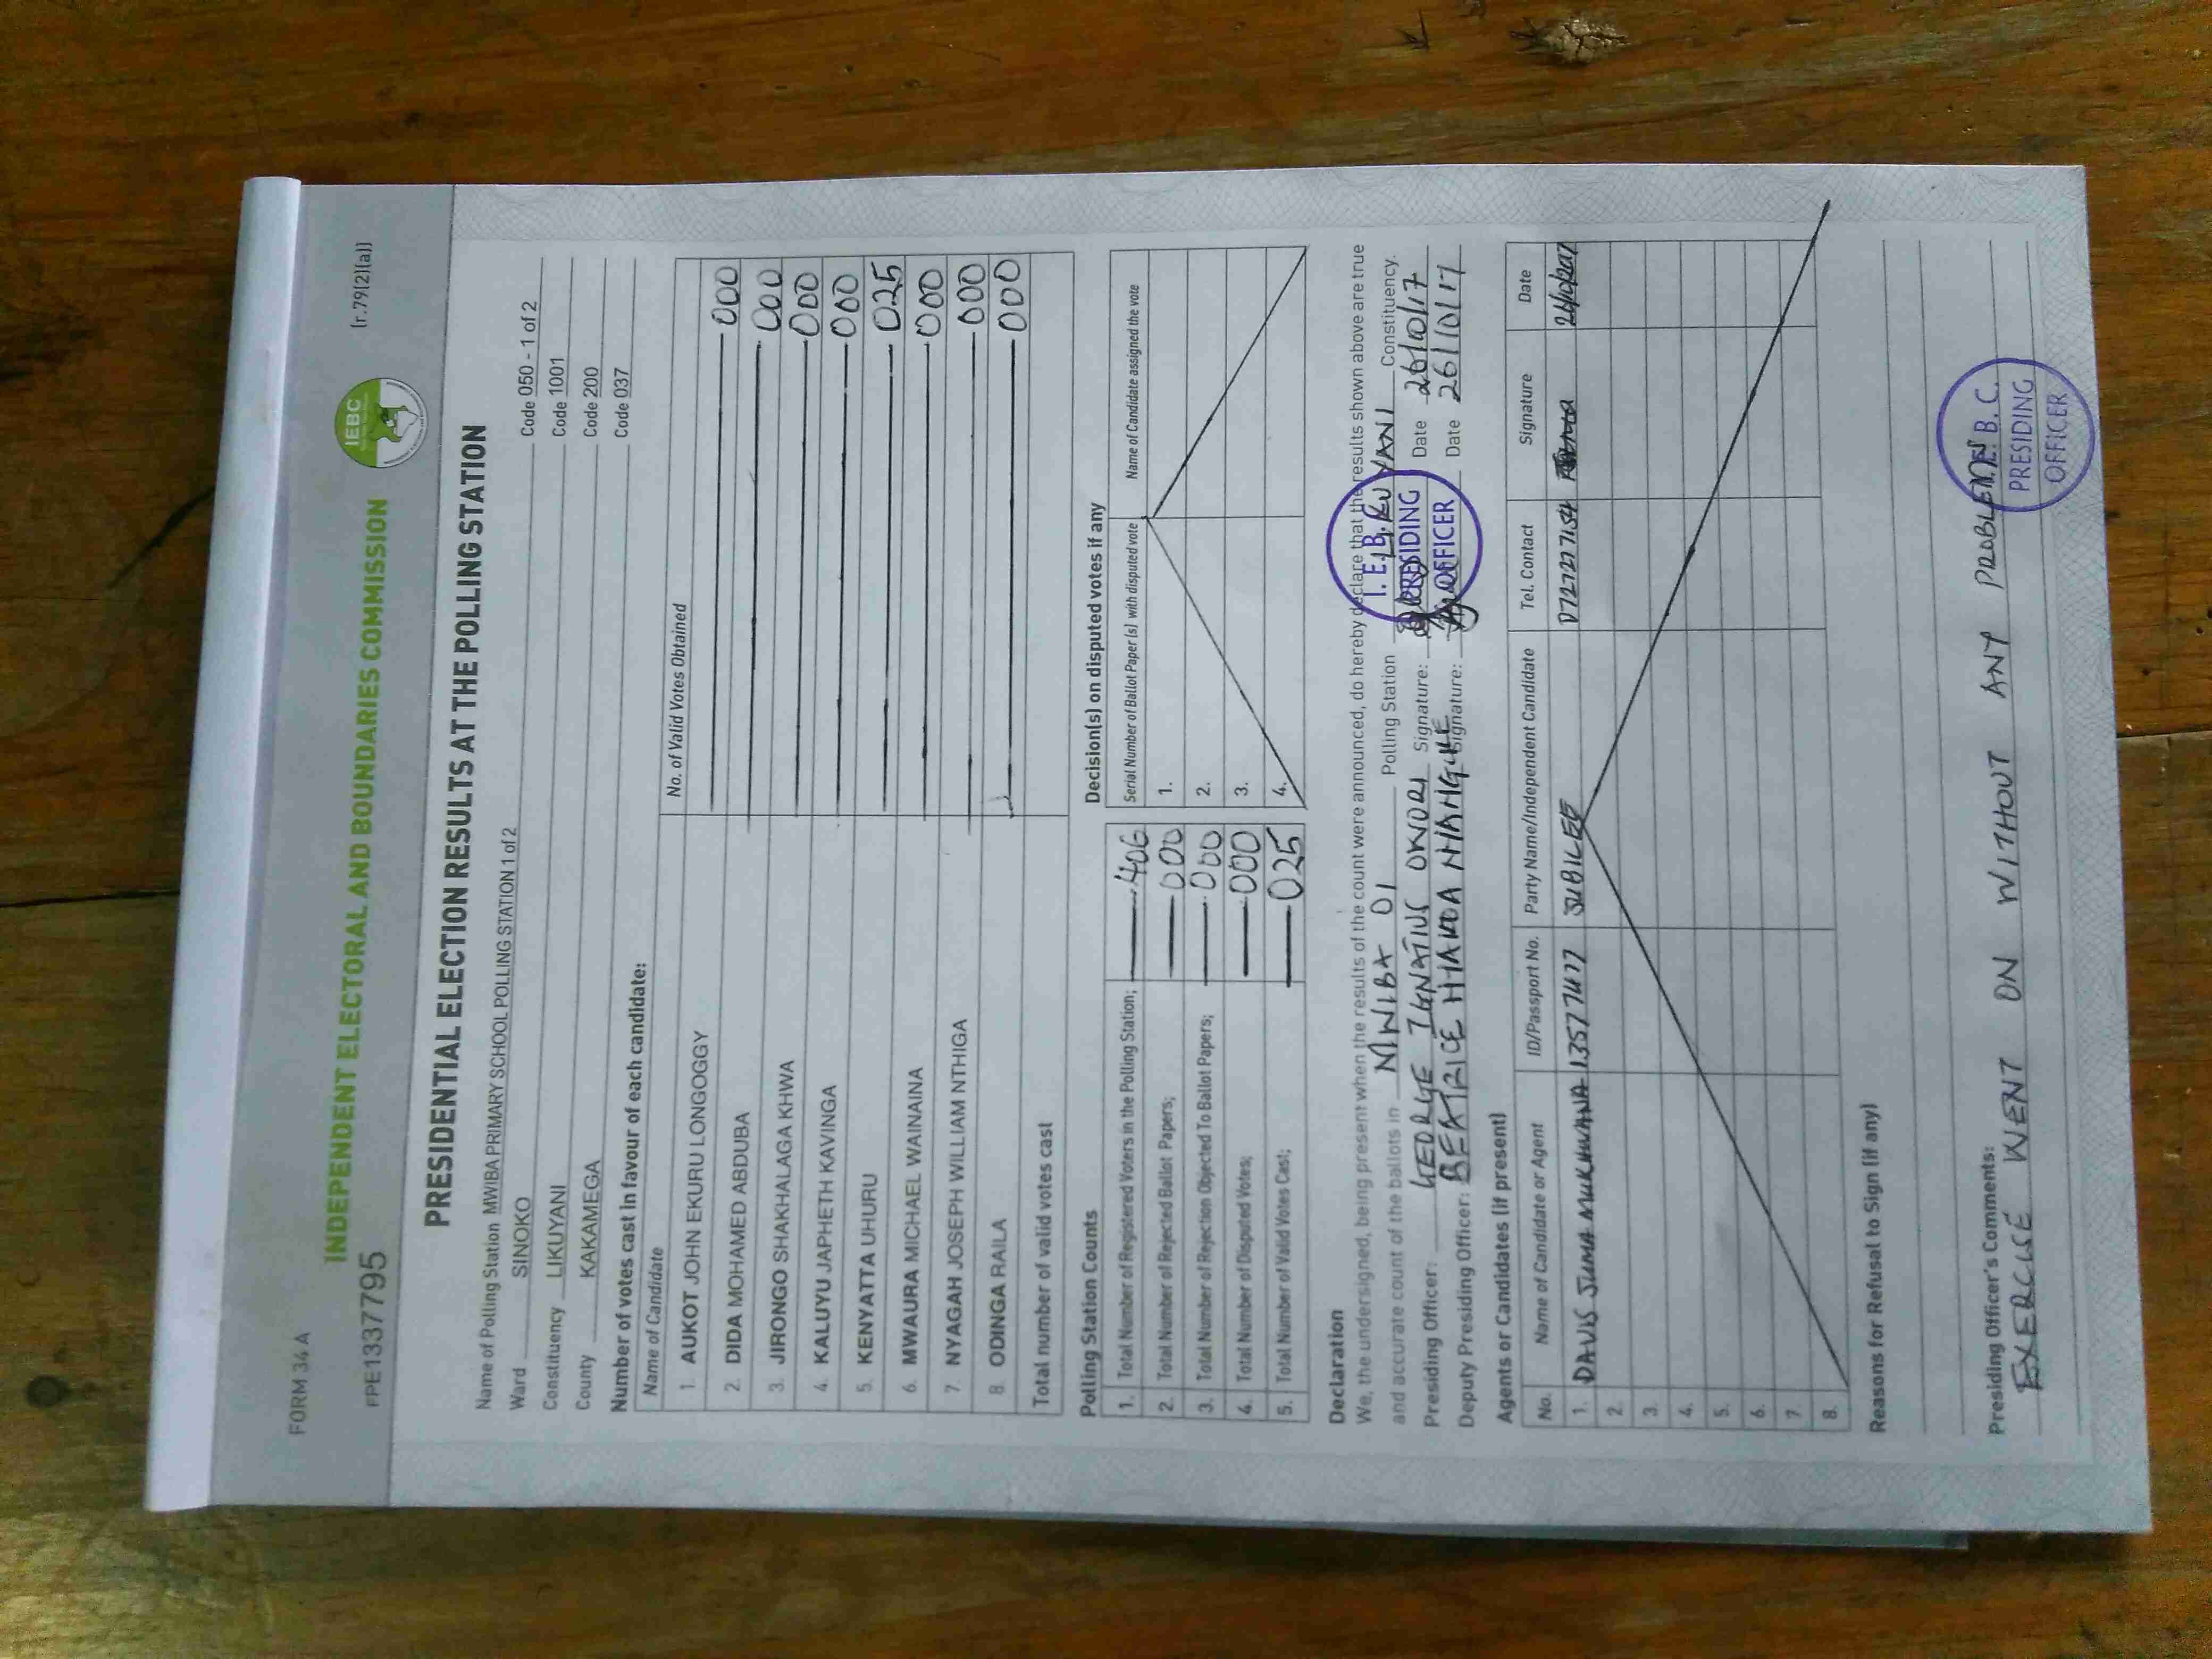 FORM 34 A
(r.79(2)(a))
IEBC
INDEPENDENT ELECTORAL AND BOUNDARIES COMMISSION
FPE1337795
PRESIDENTIAL ELECTION RESULTS AT THE POLLING STATION
Name of Polling Station MWIBA PRIMARY SCHOOL POLLING STATION 1 of 2 Code 050 - 1 of 2
Ward SINOKO Code 1001
Constituency LIKUYANI Code 200
County KAKAMEGA Code 037
Number of votes cast in favour of each candidate:
Name of Candidate No. of Valid Votes Obtained
1. AUKOT JOHN EKURU LONGOGGY 000
2. DIDA MOHAMED ABDUBA 000
3. JIRONGO SHAKHALAGA KHWA 000
4. KALUYU JAPHETH KAVINGA 000
5. KENYATTA UHURU 025
6. MWAURA MICHAEL WAINAINA 000
7. NYAGAH JOSEPH WILLIAM NTHIGA 000
8. ODINGA RAILA 000
Total number of valid votes cast
Polling Station Counts
1. Total Number of Registered Voters in the Polling Station; 406
2. Total Number of Rejected Ballot Papers; 000
3. Total Number of Rejection Objected To Ballot Papers; 000
4. Total Number of Disputed Votes; 000
5. Total Number of Valid Votes Cast; 025
Decision(s) on disputed votes if any
Serial Number of Ballot Paper (s) with disputed vote Name of Candidate assigned the vote
1.
2.
3.
4.
Declaration
We, the undersigned, being present when the results of the count were announced, do hereby declare that the results shown above are true
and accurate count of the ballots in MWIBA 01 Polling Station LIKUYANI Constituency.
Presiding Officer: GEORGE IGNATIUS OKNORI Signature: Date 26/10/17
Deputy Presiding Officer: BEATRICE Signature: Date 26/10/17
I. E. B. C.
PRESIDING
OFFICER
Agents or Candidates (if present)
No. Name of Candidate or Agent ID/Passport No. Party Name/Independent Candidate Tel. Contact Signature Date
1. DAVIS JUMA MUKHWANA 13577477 JUBILEE 0727277154 26/10/2017
2.
3.
4.
5.
6.
7.
8.
Reasons for Refusal to Sign (if any)
Presiding Officer's Comments:
EXERCISE WENT ON WITHOUT ANY PROBLEM
I. E. B. C.
PRESIDING
OFFICER